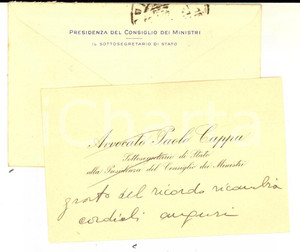 PRESIDENZA DEL CONSIGLIO DEI MINISTRI
IL SOTTOSEGRETARIO DI STATO
Avvocato Paolo Cappa
Sottosegretario di Stato
alla Presidenza del Consiglio dei Ministri
grato del ricordo ricambia
cordiali auguri